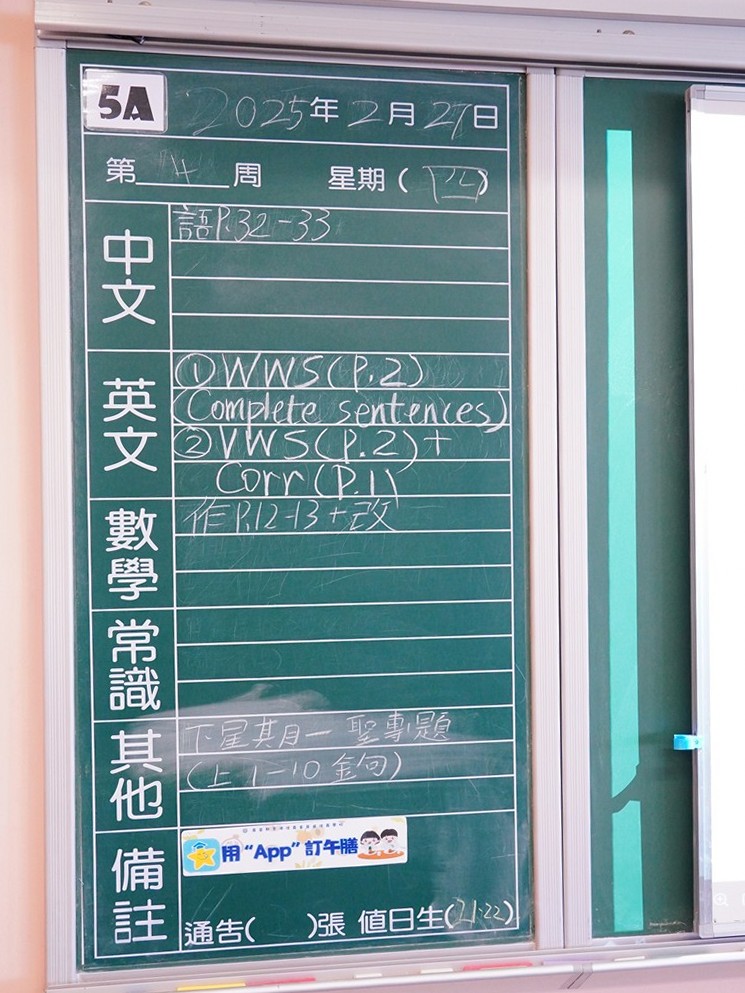 5A
2025年2月27日
第14周 星期(四)
中文
語P.32-33
英文
①WWS(P.2)
(Complete sentences)
②VWS(P.2)+
Corr(P.1)
數學
作P.12-13+改
常識
其他
下星期一 聖專題
(上1-10金句)
備註
用“App”訂午膳
通告( )張 值日生(21.22)